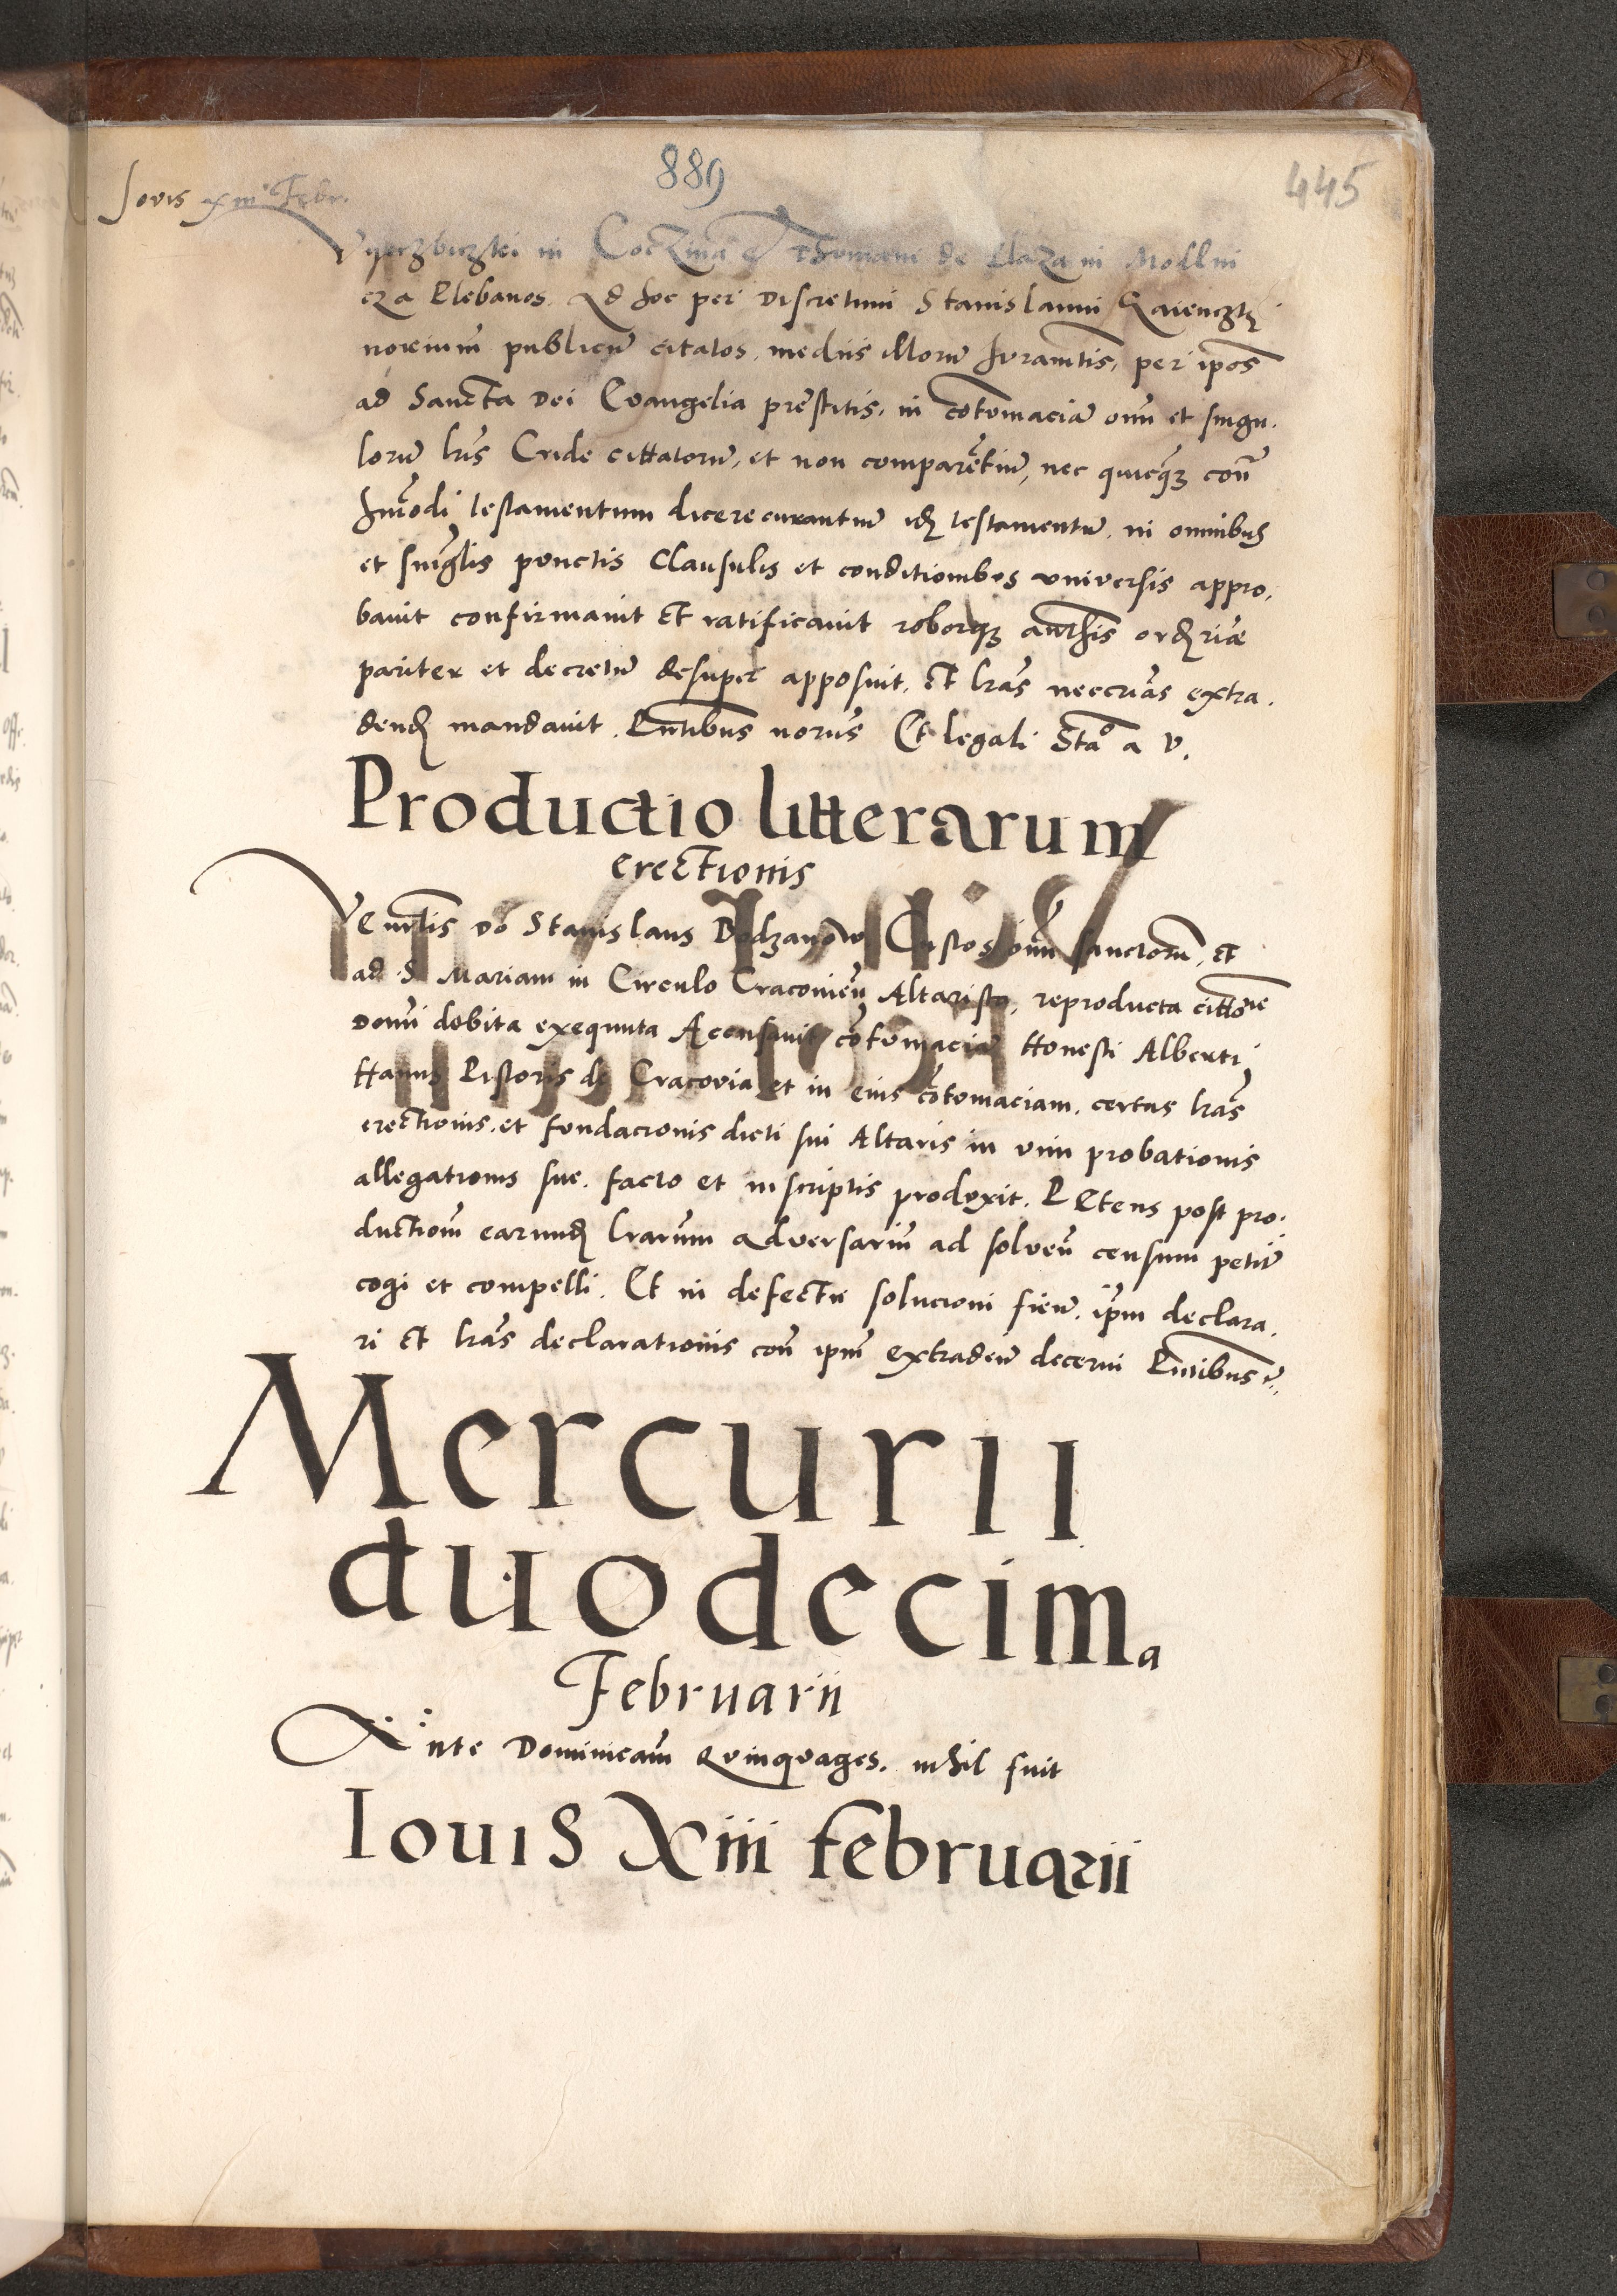 889
445
Jovis xiii Febr.
in Coczina et Thomam de Plaza in Mollni
cza Plebanos. Ad hoc per Discretum Stanislaum
norium publicu citatos, mediis illoru Juramtis, per ipos
ad Sancta Dei Evangelia prestitis, in cotumacia oim et singu.
loru hris Cride cittatoru, et non comparentiu, nec quicq con
humodi testamentum dicere curantiu idz testamentu, in omnibus
et singlis punctis Clausulis et conditionibus universis appro.
bavit confirmavit Et ratificavit roborqz authis ordz riae
pariter et decretu desuper apposuit, Et lras neccrias extra.
dendz mandavit. Pntibus noriis Et legali Sta° a v.
Productio litterarum
erectionis
Venrlis do Stanislaus Bodzanow Custos oim sanctoru, et
ad S. Mariam in Circulo Cracovien Altarista, reproducta cittone
domi debita exequuta Accusavit cotumacia Honesti Alberti
Hanus Pistoris de Cracovia et in eius cotumaciam, certas lras
erectionis, et fundacionis dicti sui Altaris in vim probationis
allegationis sue, facto et in scriptis produxit. PEtens post pro.
ductiom earundz lrarum adversariu ad solven censum petitu
cogi et compelli. Et in defectu solucioni fien, ipm declara.
ri Et lras declarationis con ipm extraden decerni Pntibus
Mercurii
duodecima
Februarii
Ante Dominicam Quinquages. nihil fuit
Iouis Xiii februarii